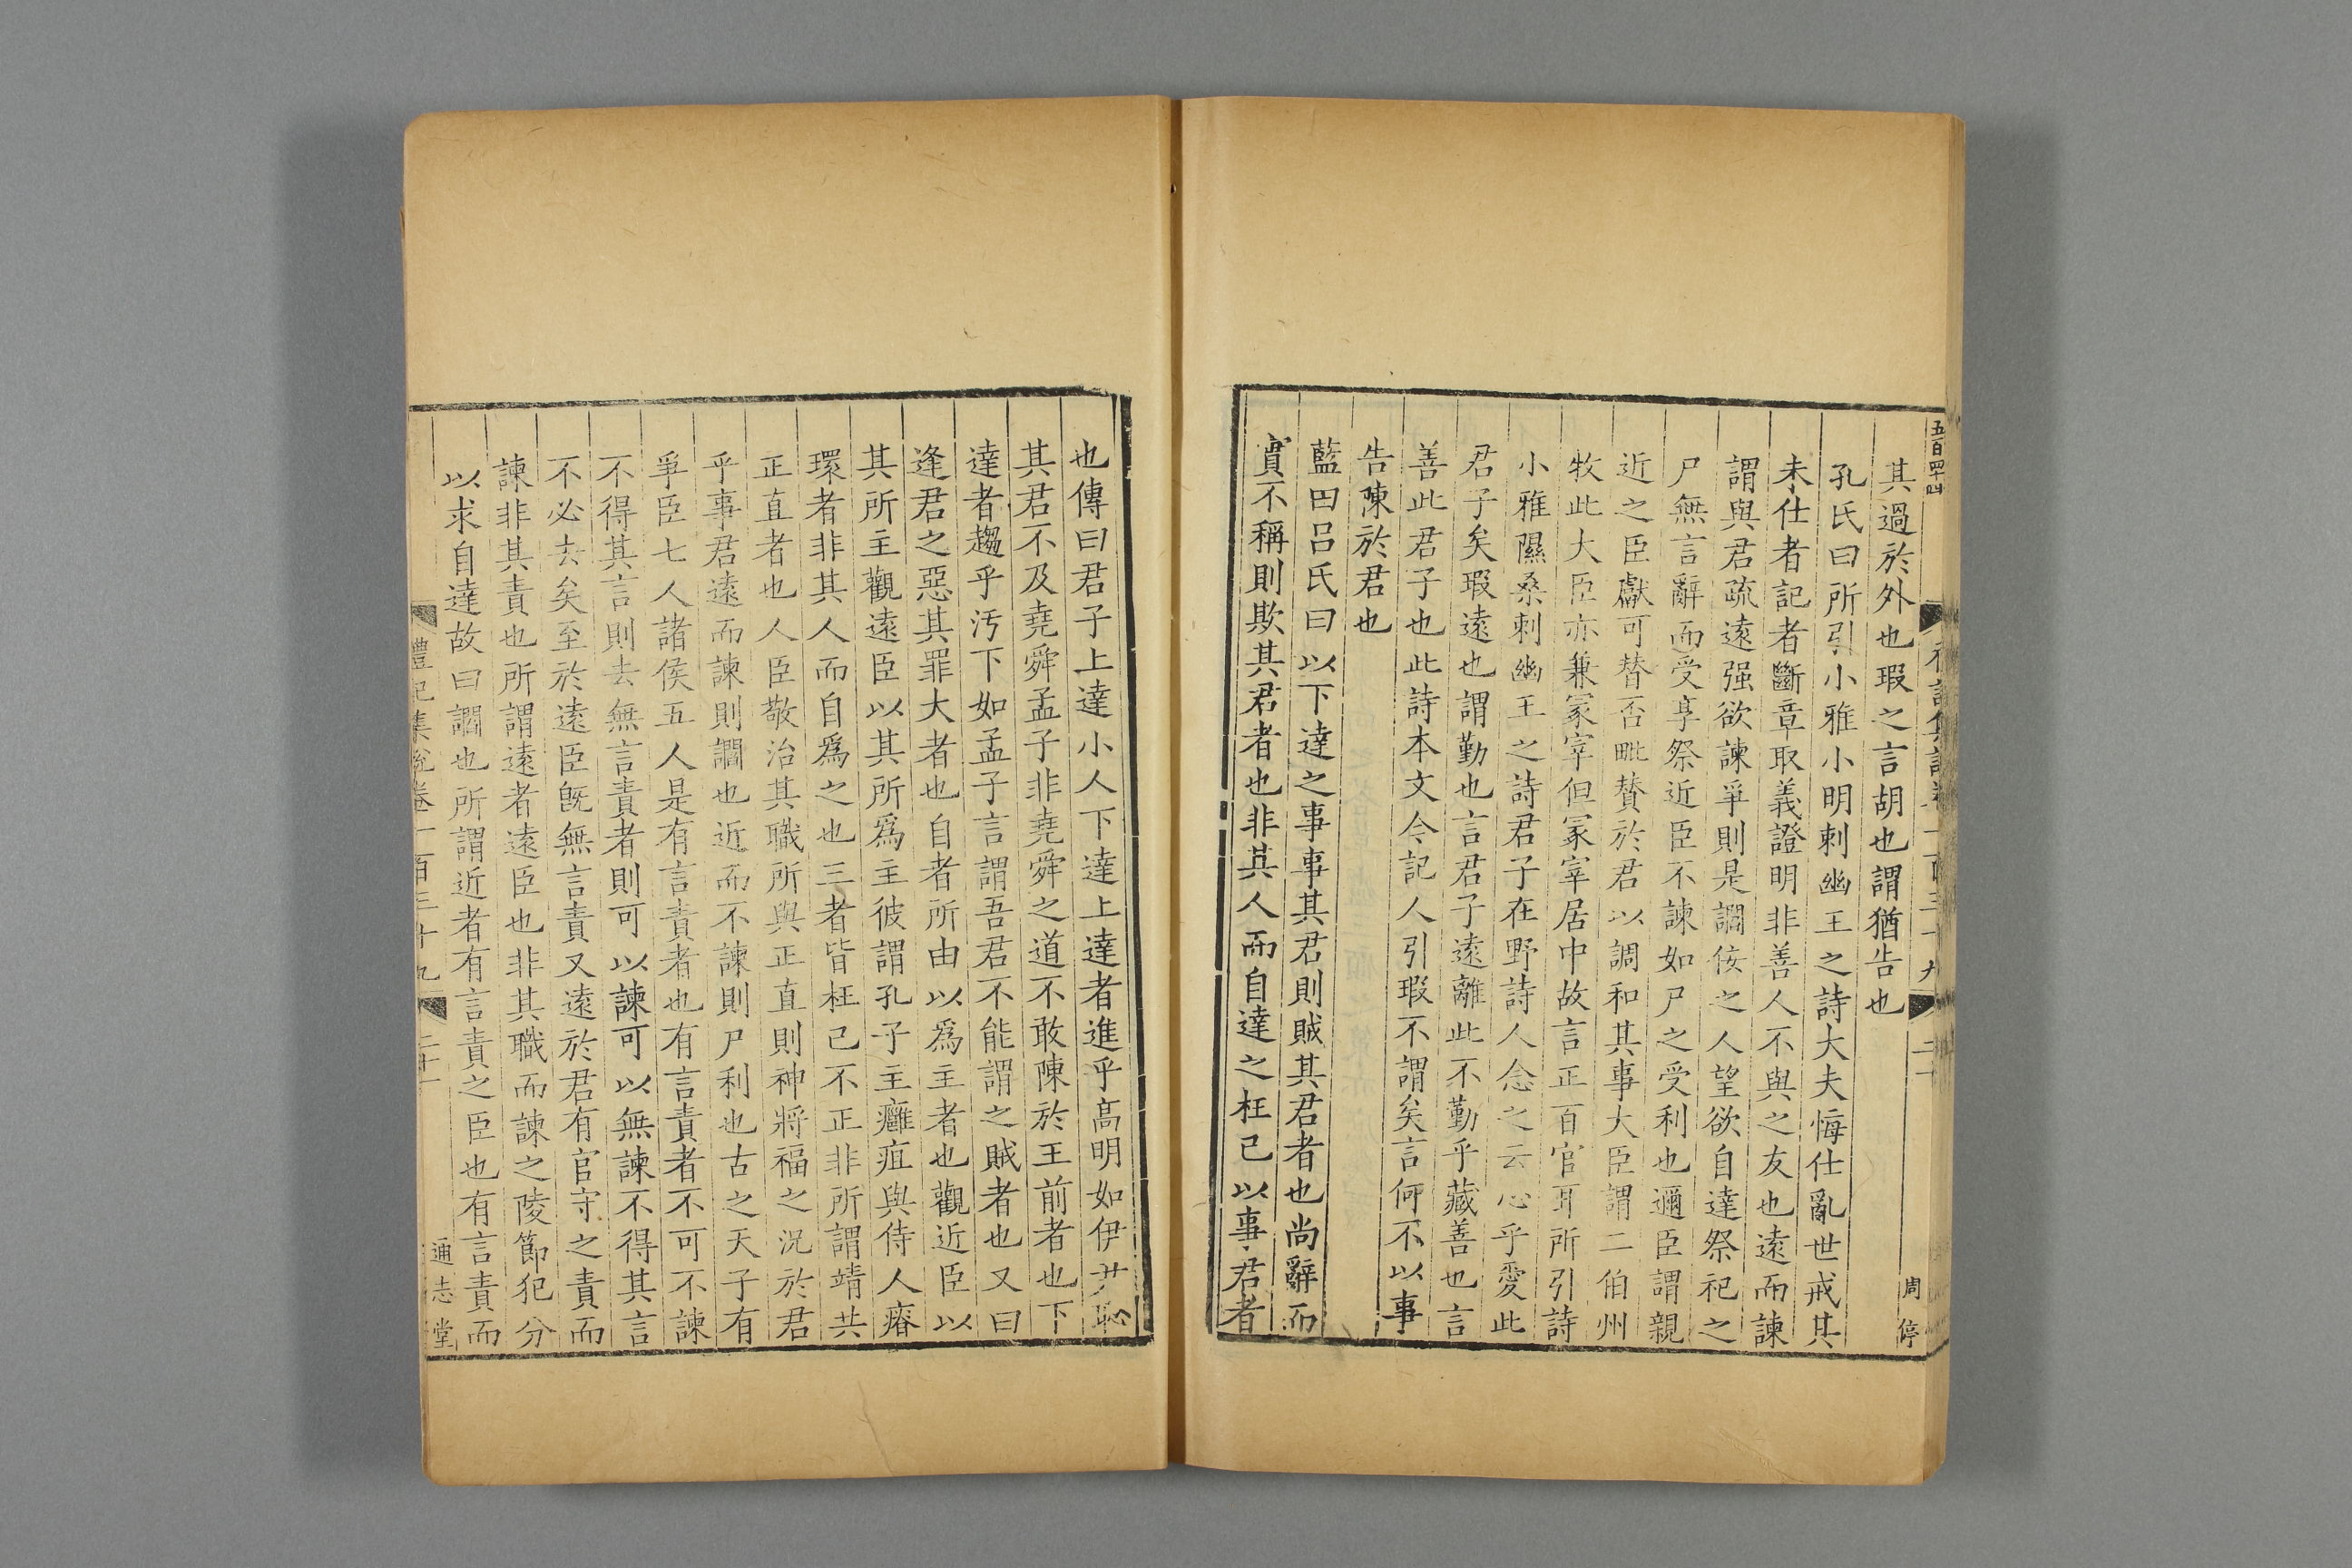 五百四十四
禮記集說卷一百三十九
二十
周停
其過於外也瑕之言胡也謂猶告也
孔氏曰所引小雅小明刺幽王之詩大夫悔仕亂世戒其
未仕者記者斷章取義證明非善人不與之友也遠而諫
謂與君疏遠强欲諫爭則是讇佞之人望欲自達祭祀之
尸無言辭而受享祭近臣不諫如尸之受利也邇臣謂親
近之臣獻可替否毗賛於君以調和其事大臣謂二伯州
牧此大臣亦兼冡宰但冡宰居中故言正百官耳所引詩
小雅隰桑刺幽王之詩君子在野詩人念之云心乎愛此
君子矣瑕遠也謂勤也言君子遠離此不勤乎藏善也言
善此君子也此詩本文今記人引瑕不謂矣言何不以事
告陳於君也
藍田呂氏曰以下達之事事其君則賊其君者也尚辭而
實不稱則欺其君者也非其人而自達之枉已以事君者
也傳曰君子上達小人下達上達者進乎高明如伊尹恥
其君不及堯舜孟子非堯舜之道不敢陳於王前者也下
達者趨乎汚下如孟子言謂吾君不能謂之賊者也又曰
逢君之惡其罪大者也自者所由以爲主者也觀近臣以
其所主觀遠臣以其所爲主彼謂孔子主癰疽與侍人瘠
環者非其人而自爲之也三者皆枉己不正非所謂靖共
正直者也人臣敬治其職所與正直則神將福之況於君
乎事君遠而諫則讇也近而不諫則尸利也古之天子有
爭臣七人諸侯五人是有言責者也有言責者不可不諫
不得其言則去無言責者則可以諫可以無諫不得其言
不必去矣至於遠臣旣無言責又遠於君有官守之責而
諫非其責也所謂遠者遠臣也非其職而諫之陵節犯分
以求自達故曰讇也所謂近者有言責之臣也有言責而
禮記集說卷一百三十九
二十一
通志堂